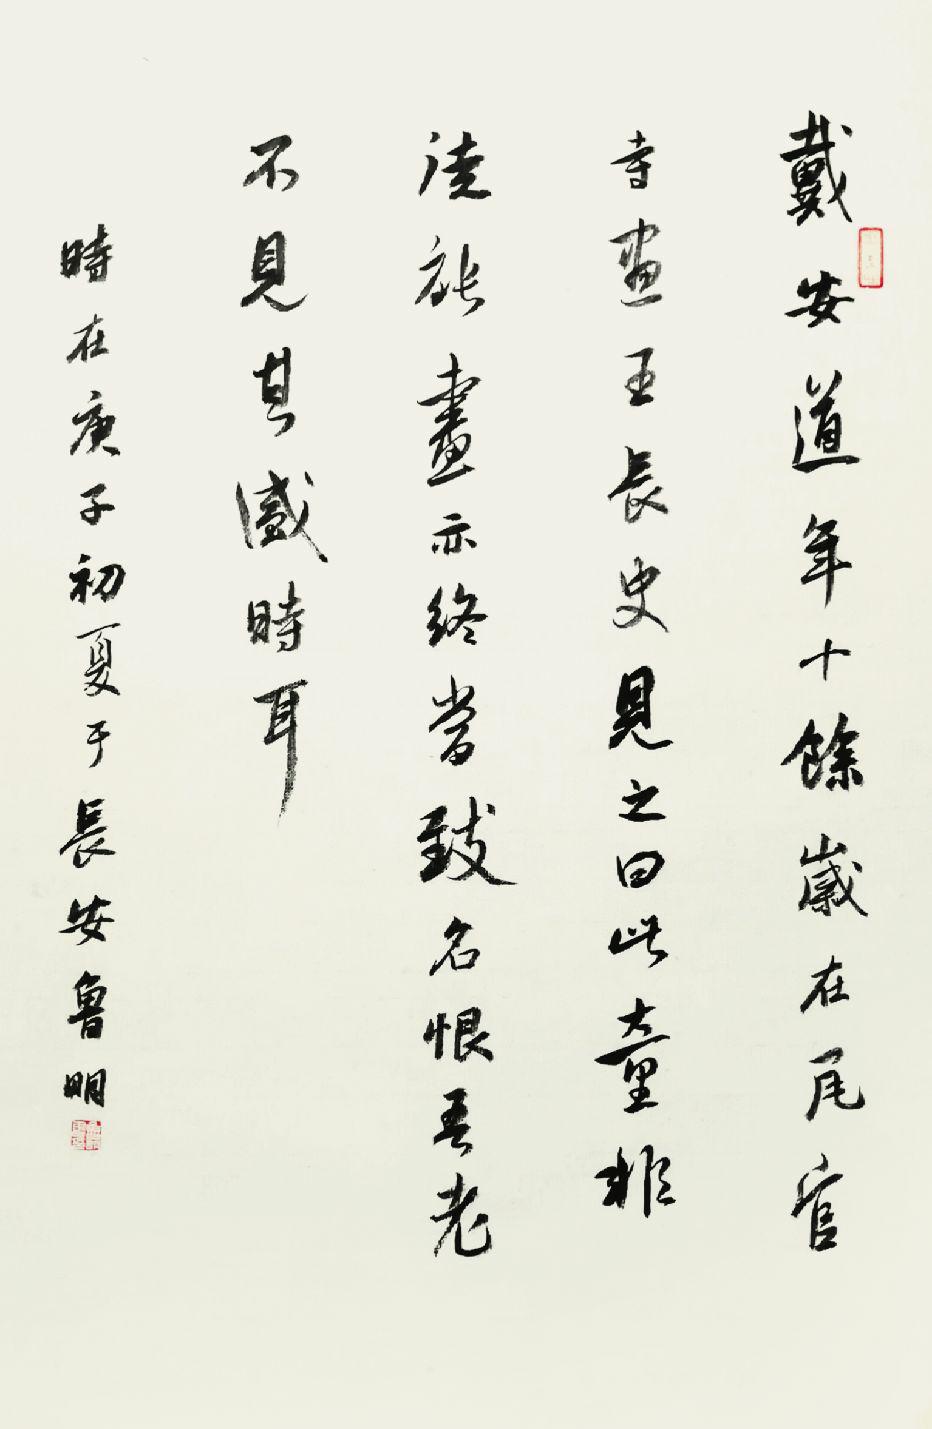 戴安道年十餘歲在瓦官
寺畫王長史見之曰此童非
徒能畫亦終當致名恨吾老
不見其盛時耳
時在庚子初夏于長安魯明